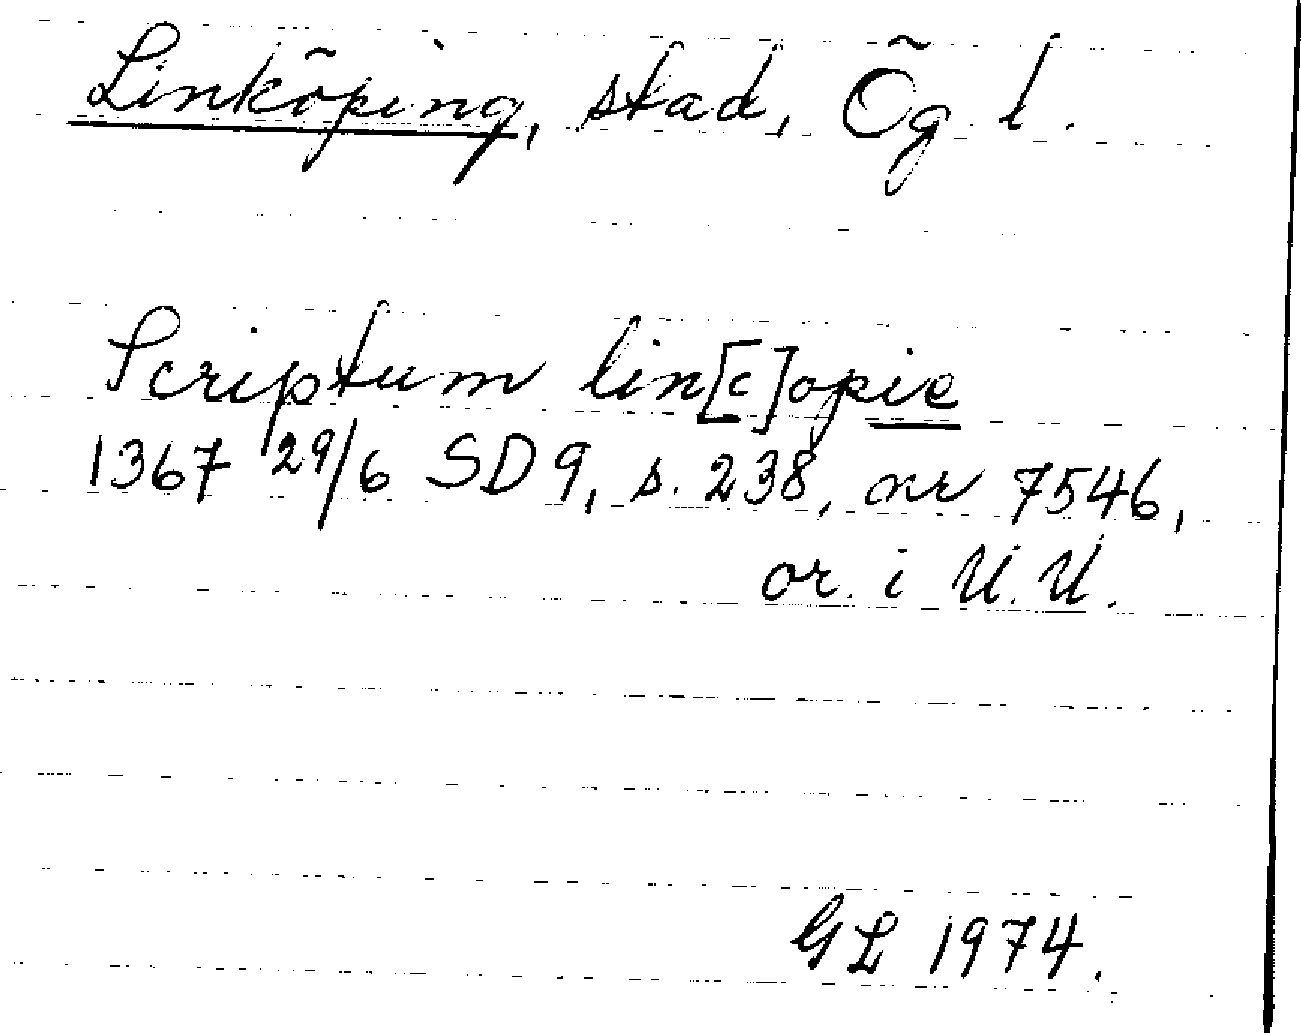 Linköping, stad, Ög. l.
Scriptum lin[c]opie
1367 29/6 SD 9, s. 238, nr 7546,
or. i U.U.
GL 1974.